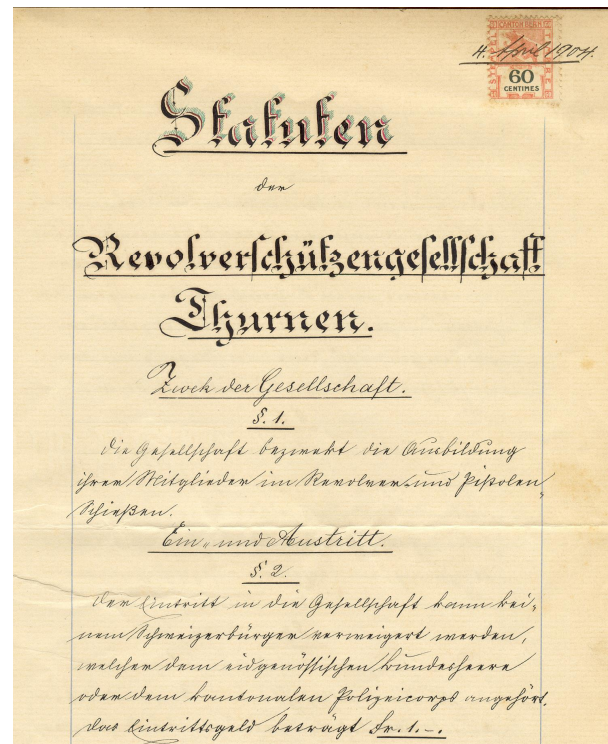 CANTON BERN
4. April 1904.
STEMPEL
TIMBRE
60
CENTIMES
Statuten
der
Revolverschützengesellschaft
Thurnen.
Zweck der Gesellschaft.
§. 1.
Die Gesellschaft bezwekt die Ausbildung
ihrer Mitglieder im Revolver- und Pistolen-
Schießen.
Ein- und Austritt.
§. 2.
Der Eintritt in die Gesellschaft kann kei-
nem Schweizerbürger verweigert werden,
welcher dem eidgenössischen Bundesheere
oder dem kantonalen Polizeicorps angehört.
Das Eintrittsgeld beträgt Fr. 1.-.